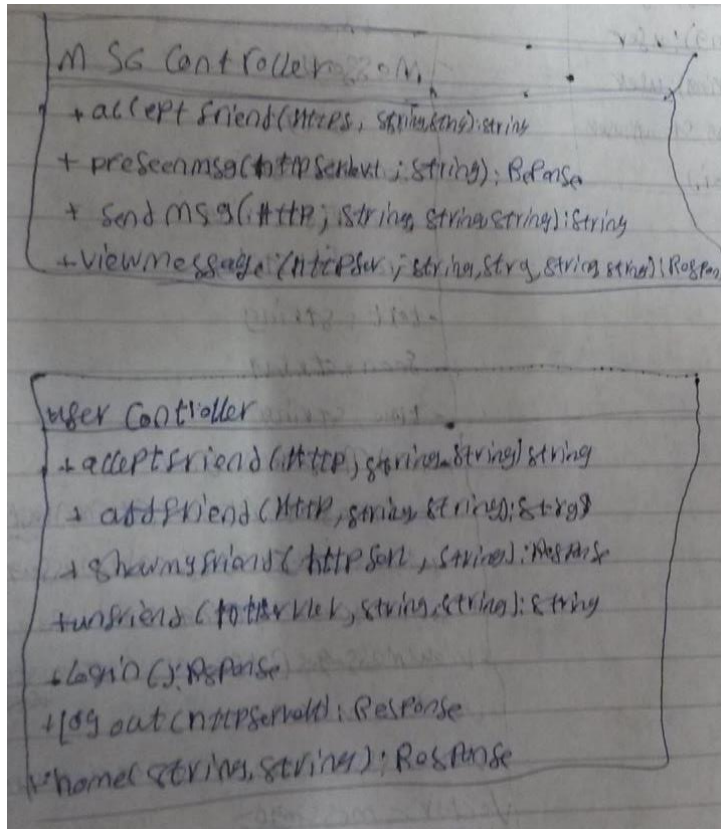 MSG Controller
+ acceptfriend(Https, string,string):string
+ preseenmsg(httpservlet ; string): Reponse
+ Send msg(Http; string, string,string):String
+viewmessage:(httpser ; string,strg,string,string):Respon
user Controller
+ acceptfriend(Http, string,String) string
+ addfriend(Http, string, string):
+ showmyfriend( , string): Response
+unfriend ( , string,string): string
+Login():Response
+Log out(httpservelt): Response
+home(string,string): Response